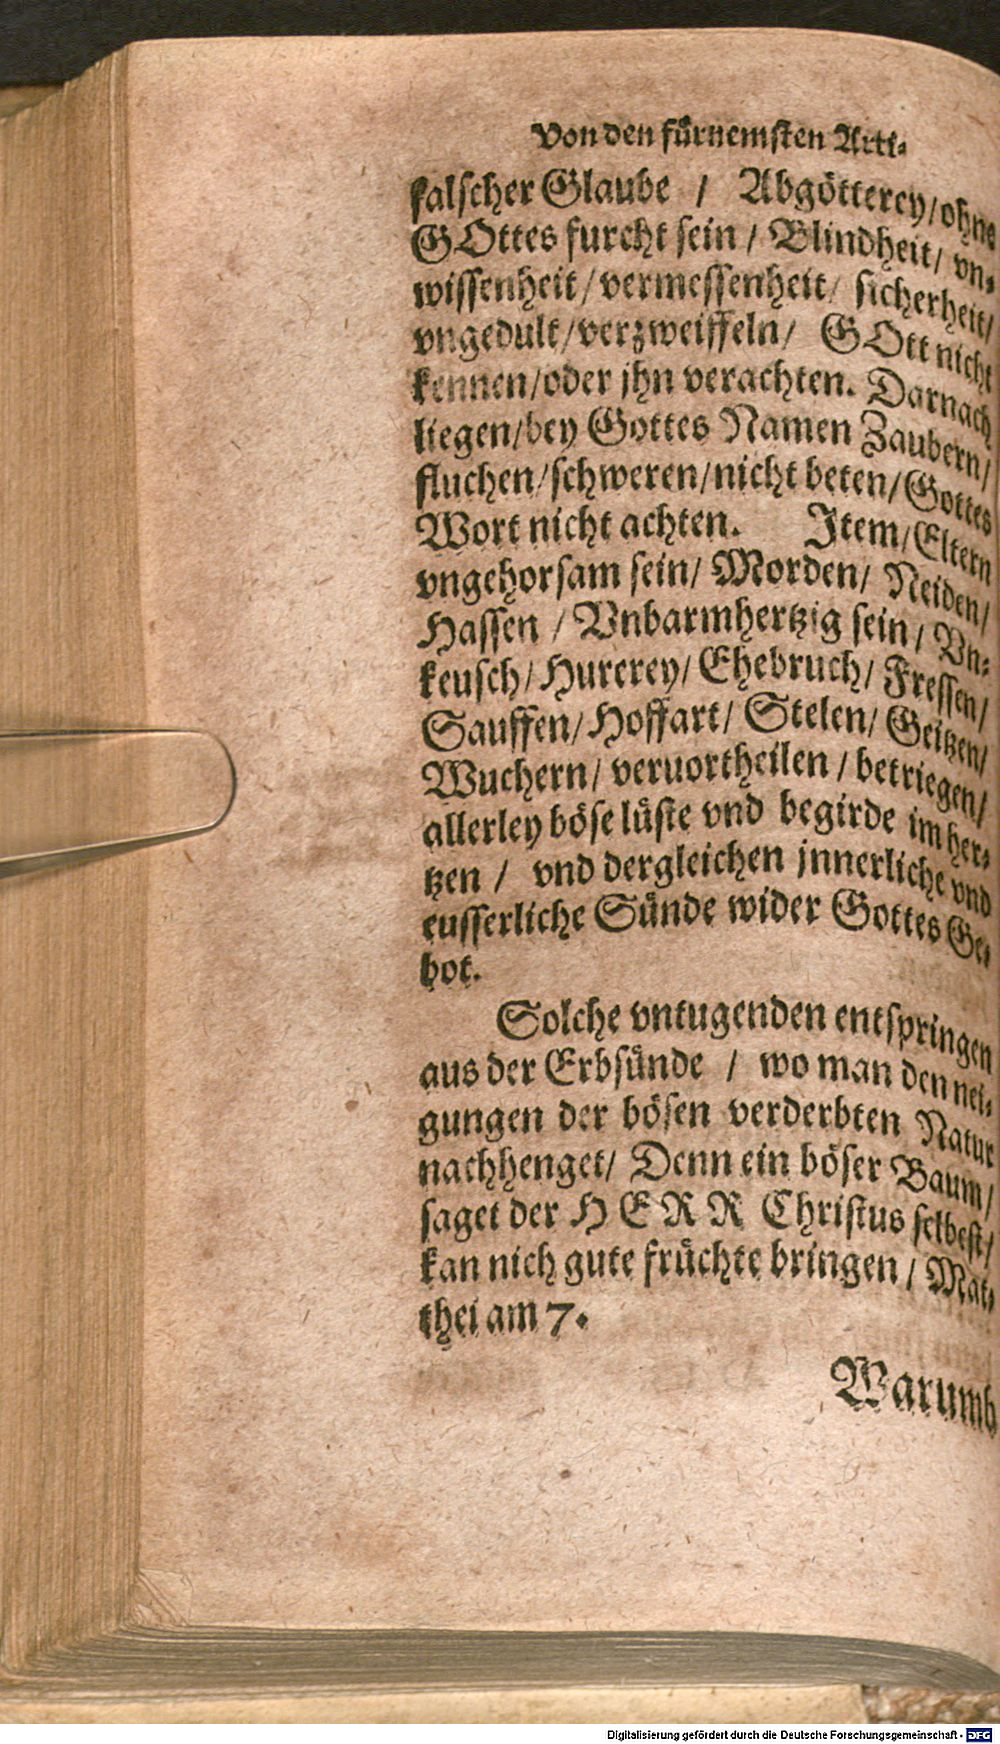 Von den fürnemsten Arti-
falscher Glaube / Abgötterey/ohne
GOttes furcht sein / Blindheit/ vn-
wissenheit/vermessenheit/ sicherheit/
vngedult/verzweiffeln/ GOtt nicht
kennen/oder jhn verachten. Darnach
liegen/bey Gottes Namen Zaubern/
fluchen/schweren/nicht beten/Gottes
Wort nicht achten. Item/Eltern
vngehorsam sein/ Morden/ Neiden/
Hassen / Vnbarmhertzig sein/ Vn-
keusch/ Hurerey/ Ehebruch/ Fressen/
Sauffen/ Hoffart/ Stelen/ Geitzen/
Wuchern/ veruortheilen / betriegen/
allerley böse lüste vnd begirde im her-
tzen / vnd dergleichen jnnerliche vnd
eusserliche Sünde wider Gottes Ge-
bot.
Solche vntugenden entspringen
aus der Erbsünde / wo man den nei-
gungen der bösen verderbten Natur
nachhenget/ Denn ein böser Baum/
saget der HERR Christus selbest/
kan nich gute früchte bringen / Mat-
thei am 7.
Warumb
Digitalisierung gefördert durch die Deutsche Forschungsgemeinschaft - DFG